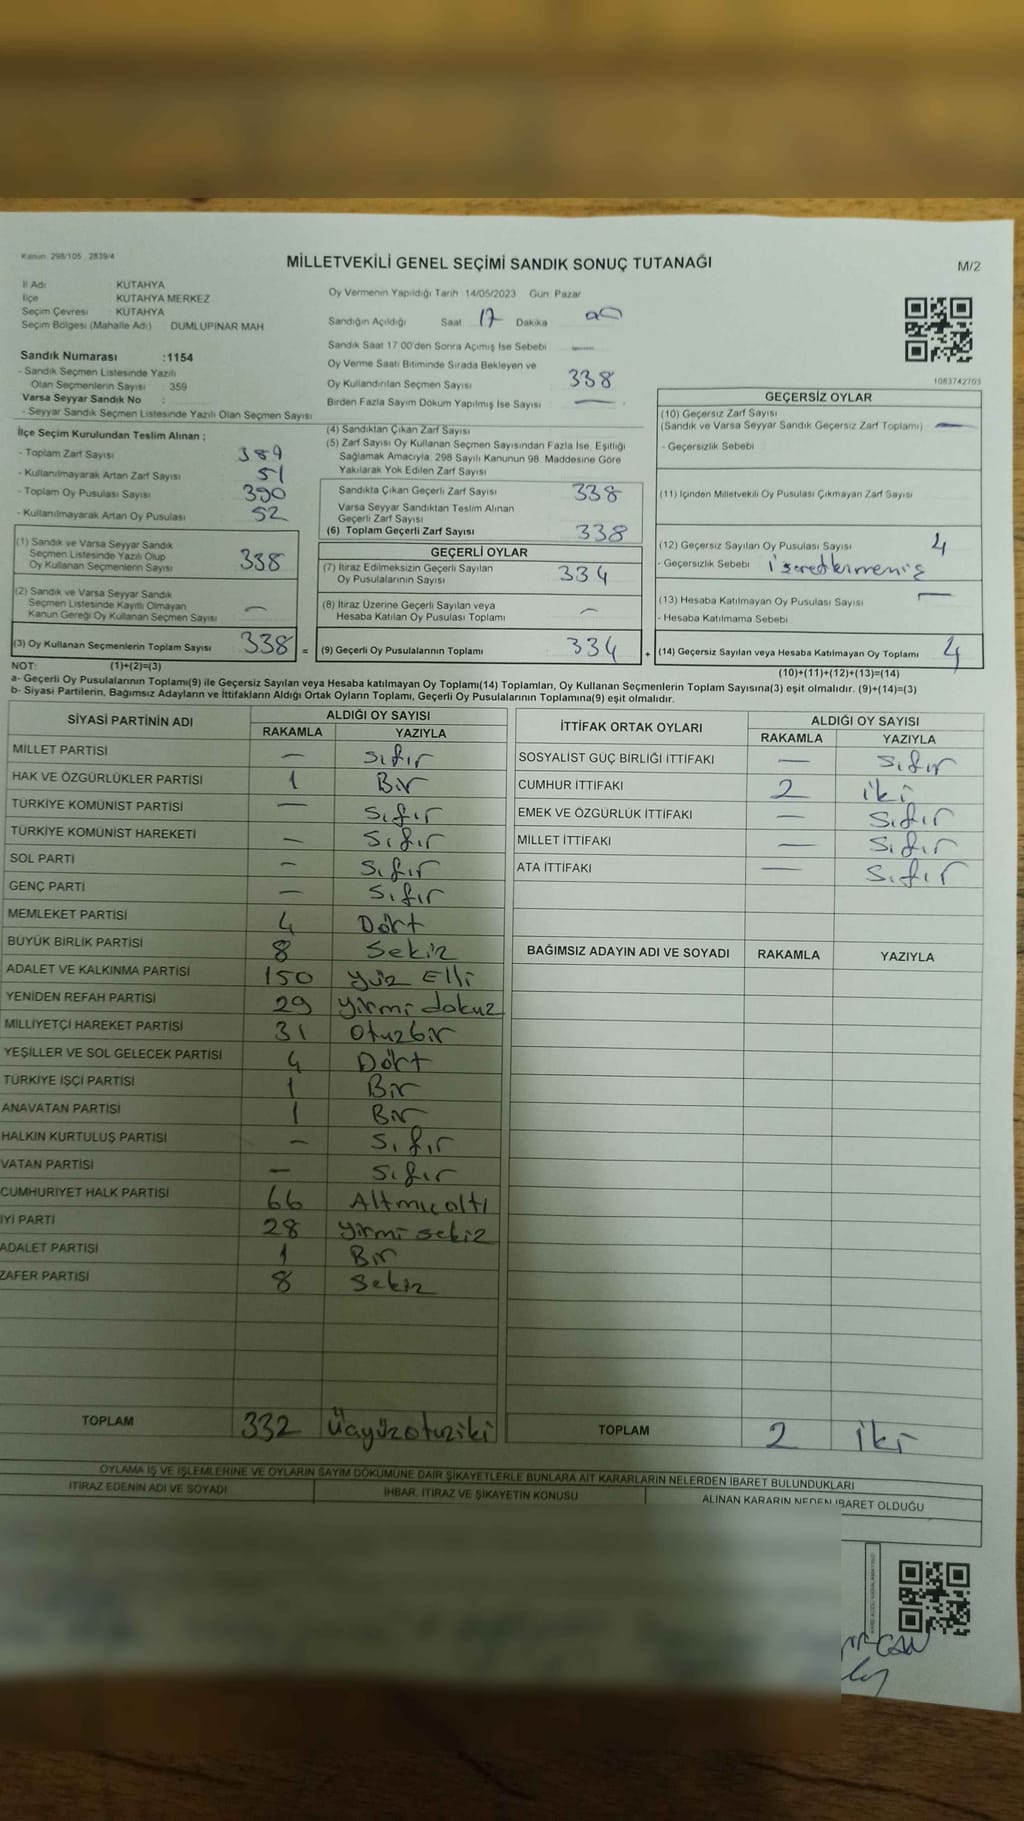 Kanun 298/105, 2839/4
MİLLETVEKİLİ GENEL SEÇİMİ SANDIK SONUÇ TUTANAĞI
M/2
İl Adı KUTAHYA
İlçe KUTAHYA MERKEZ
Seçim Çevresi KUTAHYA
Seçim Bölgesi (Mahalle Adı) DUMLUPINAR MAH
Sandık Numarası :1154
- Sandık Seçmen Listesinde Yazılı
Olan Seçmenlerin Sayısı 359
Varsa Seyyar Sandık No :
- Seyyar Sandık Seçmen Listesinde Yazılı Olan Seçmen Sayısı
İlçe Seçim Kurulundan Teslim Alınan ;
- Toplam Zarf Sayısı 389
- Kullanılmayarak Artan Zarf Sayısı 51
- Toplam Oy Pusulası Sayısı 390
- Kullanılmayarak Artan Oy Pusulası 52
(1) Sandık ve Varsa Seyyar Sandık
Seçmen Listesinde Yazılı Olup
Oy Kullanan Seçmenlerin Sayısı 338
(2) Sandık ve Varsa Seyyar Sandık
Seçmen Listesinde Kayıtlı Olmayan
Kanun Gereği Oy Kullanan Seçmen Sayısı —
(3) Oy Kullanan Seçmenlerin Toplam Sayısı 338 =
Oy Vermenin Yapıldığı Tarih 14/05/2023 Gün Pazar
Sandığın Açıldığı Saat 17 Dakika 00
Sandık Saat 17:00'den Sonra Açımış İse Sebebi —
Oy Verme Saati Bitiminde Sırada Bekleyen ve
Oy Kullandırılan Seçmen Sayısı 338
Birden Fazla Sayım Döküm Yapılmış İse Sayısı —
(4) Sandıktan Çıkan Zarf Sayısı
(5) Zarf Sayısı Oy Kullanan Seçmen Sayısından Fazla İse, Eşitliği
Sağlamak Amacıyla, 298 Sayılı Kanunun 98. Maddesine Göre
Yakılarak Yok Edilen Zarf Sayısı
Sandıkta Çıkan Geçerli Zarf Sayısı 338
Varsa Seyyar Sandıktan Teslim Alınan
Geçerli Zarf Sayısı
(6) Toplam Geçerli Zarf Sayısı 338
GEÇERLİ OYLAR
(7) İtiraz Edilmeksizin Geçerli Sayılan
Oy Pusulalarının Sayısı 334
(8) İtiraz Üzerine Geçerli Sayılan veya
Hesaba Katılan Oy Pusulası Toplamı —
(9) Geçerli Oy Pusulalarının Toplamı 334 +
1083742703
GEÇERSİZ OYLAR
(10) Geçersiz Zarf Sayısı
(Sandık ve Varsa Seyyar Sandık Geçersiz Zarf Toplamı) —
- Geçersizlik Sebebi
(11) İçinden Milletvekili Oy Pusulası Çıkmayan Zarf Sayısı
(12) Geçersiz Sayılan Oy Pusulası Sayısı 4
- Geçersizlik Sebebi
(13) Hesaba Katılmayan Oy Pusulası Sayısı —
- Hesaba Katılmama Sebebi
(14) Geçersiz Sayılan veya Hesaba Katılmayan Oy Toplamı 4
NOT: (1)+(2)=(3) (10)+(11)+(12)+(13)=(14)
a- Geçerli Oy Pusulalarının Toplamı(9) ile Geçersiz Sayılan veya Hesaba katılmayan Oy Toplamı(14) Toplamları, Oy Kullanan Seçmenlerin Toplam Sayısına(3) eşit olmalıdır. (9)+(14)=(3)
b- Siyasi Partilerin, Bağımsız Adayların ve İttifakların Aldığı Ortak Oyların Toplamı, Geçerli Oy Pusulalarının Toplamına(9) eşit olmalıdır.
SİYASİ PARTİNİN ADI ALDIĞI OY SAYISI
RAKAMLA YAZIYLA
MİLLET PARTİSİ — Sıfır
HAK VE ÖZGÜRLÜKLER PARTİSİ 1 Bir
TÜRKİYE KOMÜNİST PARTİSİ — Sıfır
TÜRKİYE KOMÜNİST HAREKETİ — Sıfır
SOL PARTİ — Sıfır
GENÇ PARTİ — Sıfır
MEMLEKET PARTİSİ 4 Dört
BÜYÜK BİRLİK PARTİSİ 8 Sekiz
ADALET VE KALKINMA PARTİSİ 150 Yüz Elli
YENİDEN REFAH PARTİSİ 29 yirmi dokuz
MİLLİYETÇİ HAREKET PARTİSİ 31 Otuzbir
YEŞİLLER VE SOL GELECEK PARTİSİ 4 Dört
TÜRKİYE İŞÇİ PARTİSİ 1 Bir
ANAVATAN PARTİSİ 1 Bir
HALKIN KURTULUŞ PARTİSİ — Sıfır
VATAN PARTİSİ — Sıfır
CUMHURİYET HALK PARTİSİ 66 Altmışaltı
İYİ PARTİ 28 yirmi sekiz
ADALET PARTİSİ 1 Bir
ZAFER PARTİSİ 8 Sekiz
TOPLAM 332 Üçyüzotuziki
İTTİFAK ORTAK OYLARI ALDIĞI OY SAYISI
RAKAMLA YAZIYLA
SOSYALİST GÜÇ BİRLİĞİ İTTİFAKI — Sıfır
CUMHUR İTTİFAKI 2 iki
EMEK VE ÖZGÜRLÜK İTTİFAKI — Sıfır
MİLLET İTTİFAKI — Sıfır
ATA İTTİFAKI — Sıfır
BAĞIMSIZ ADAYIN ADI VE SOYADI RAKAMLA YAZIYLA
TOPLAM 2 iki
OYLAMA İŞ VE İŞLEMLERİNE VE OYLARIN SAYIM DÖKÜMÜNE DAİR ŞİKAYETLERLE BUNLARA AİT KARARLARIN NELERDEN İBARET BULUNDUKLARI
İTİRAZ EDENİN ADI VE SOYADI İHBAR, İTİRAZ VE ŞİKAYETİN KONUSU ALINAN KARARIN NEDEN İBARET OLDUĞU